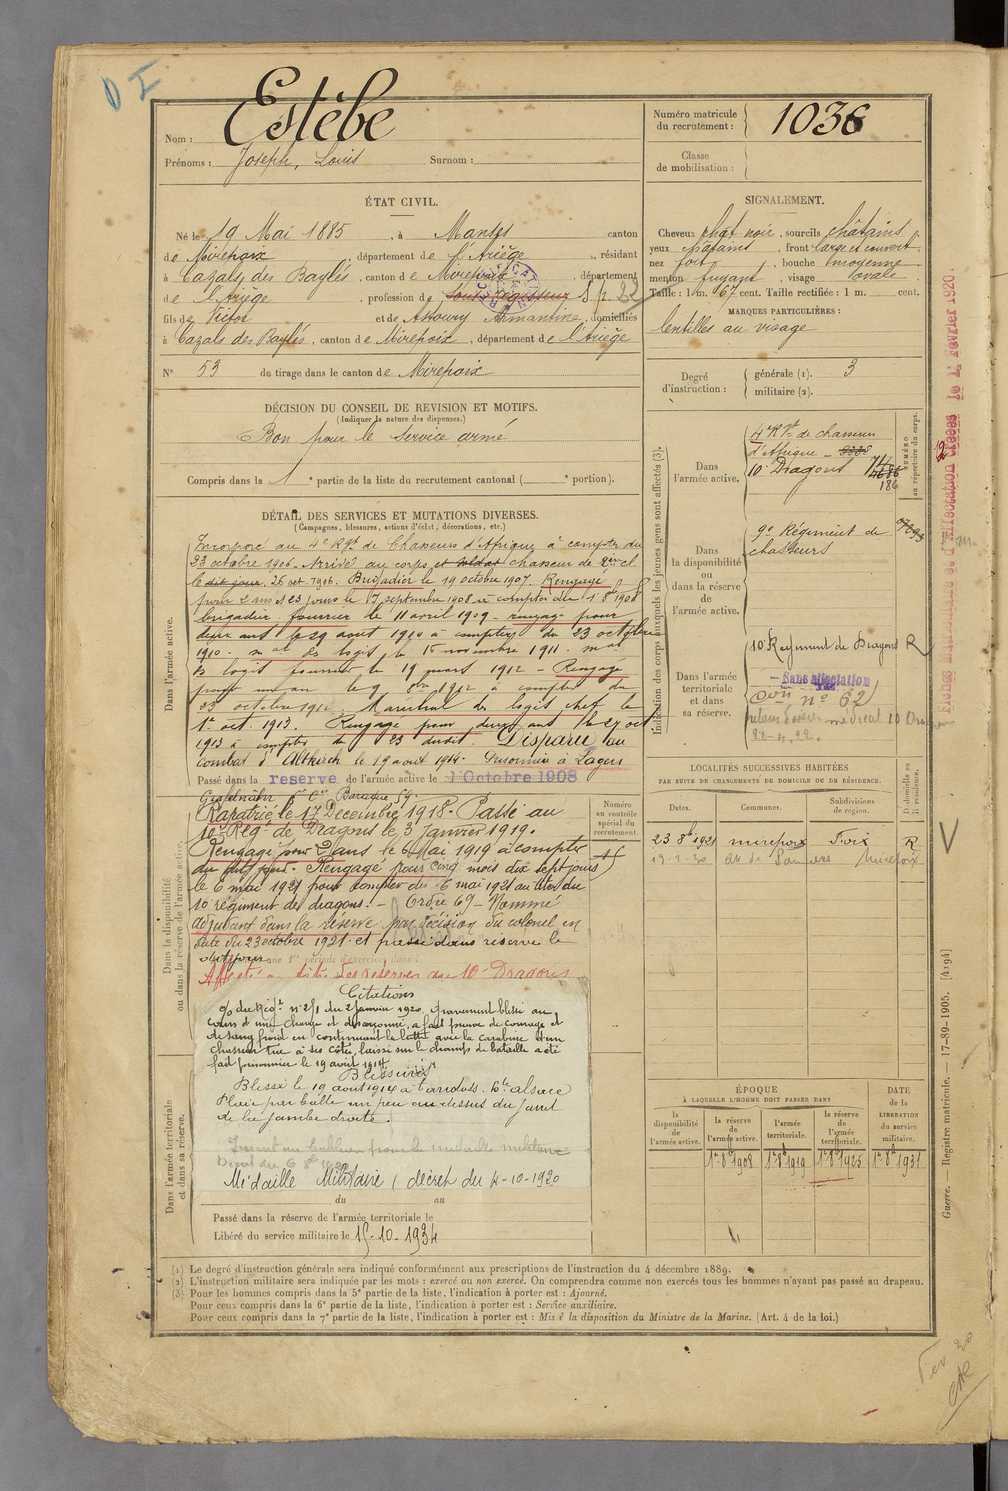 Nom : Estèbe
Prénoms : Joseph, Louis Surnom :
Numéro matricule
du recrutement : 1036
Classe
de mobilisation :
ÉTAT CIVIL.
Né le 19 Mai 1885, à Manses canton
de Mirepoix, département de l'Ariège, résidant
à Cazals des Baylès, canton de Mirepoix, département
de l'Ariège, profession de sous-régisseur
fils de Victor et de Armantine, domiciliés
à Cazals des Baylès, canton de Mirepoix, département de l'Ariège
N° 53 de tirage dans le canton de Mirepoix
SIGNALEMENT.
Cheveux chat noir, sourcils châtains
yeux châtains, front large et couvert
nez fort, bouche moyenne
menton fuyant, visage ovale
Taille : 1 m. 67 cent. Taille rectifiée : 1 m. cent.
MARQUES PARTICULIÈRES :
lentilles au visage
Degré
d'instruction :
générale (1). 3
militaire (2).
DÉCISION DU CONSEIL DE REVISION ET MOTIFS.
(Indiquer la nature des dispenses.)
Bon pour le service armé
Compris dans la 1e partie de la liste du recrutement cantonal ( e portion).
DÉTAIL DES SERVICES ET MUTATIONS DIVERSES.
(Campagnes, blessures, actions d'éclat, décorations, etc.)
Dans l'armée active.
Incorporé au 4e Rgt de Chasseurs d'Afrique à compter du
23 octobre 1906. Arrivé au corps et soldat chasseur de 2e cl.
le dit jour. 26 oct 1906. Brigadier le 19 octobre 1907. Rengagé
pour 2 ans et 23 jours le 7 septembre 1908 à compter du 1er 8bre 1908
brigadier fourrier le 11 avril 1909 - rengagé pour
deux ans le 29 aout 1910 à compter du 23 octobre
1910 - mal des logis le 15 novembre 1911. mal
des logis fourrier le 19 mars 1912 - Rengagé
pour un an le 9 8bre 1912 à compter du
23 octobre 1912. Maréchal des logis chef le
1er oct 1913. Rengagé pour deux ans le 21 oct
1913 à compter du 23 dudit. Disparu au
combat d'Altkirch le 19 aout 1914. Prisonnier à Lagers
Passé dans la reserve de l'armée active le 1 Octobre 1908
Dans la disponibilité
ou dans la réserve de l'armée active.
Rapatrié le 17 Décembre 1918. Passé au
10e Rég. de Dragons le 3 Janvier 1919.
Rengagé pour 2 ans le 6 Mai 1919 à compter
du dit jour. Rengagé pour cinq mois dix sept jours
le 6 mai 1921 pour compter du 6 mai 1921 au titre du
10 régiment de dragons. - Ordre 69 - Nommé
adjudant dans la réserve par décision du colonel en
date du 23 octobre 1921 et passé dans réserve le
dit jour
Affecté 10e Dragons
Numéro
au contrôle
spécial du
recrutement.
Citations
o/o du Régt n° 251 du 2 janvier 1920. Gravement blessé au
cours d'une charge et désarçonné, a fait preuve de courage et
de sang froid en continuant la lutte avec la carabine d'un
chasseur tué à ses côtés, laissé sur le champ de bataille a été
fait prisonnier le 19 avril 1914
Blessures
Blessé le 19 aout 1914 à Hte alsace
Plaie par balle un peu au dessus du jarret
de la jambe droite.
Inscrit au tableau pour la médaille militaire
Médaille Militaire (décret du 4-10-1920
du au
Dans l'armée territoriale
et dans sa réserve.
Passé dans la réserve de l'armée territoriale le
Libéré du service militaire le 15-10-1934
Indication des corps auxquels les jeunes gens sont affectés (3).
NUMÉRO
au répertoire du corps.
Dans
l'armée active.
4e Rgt de chasseurs
d'Afrique
10e Dragons
186
Dans
la disponibilité
ou
dans la réserve
de
l'armée active.
9e Régiment de
chasseurs
Dans l'armée
territoriale
et dans
sa réserve.
10e Régiment de Dragons R
Sans affectation
don n° 62
LOCALITÉS SUCCESSIVES HABITÉES
PAR SUITE DE CHANGEMENTS DE DOMICILE OU DE RÉSIDENCE.
Dates. Communes. Subdivisions
de région. D domicile ou
R résidence.
23 8b 1921 mirepoix Foix R
ÉPOQUE
À LAQUELLE L'HOMME DOIT PASSER DANS
la
disponibilité
de
l'armée active.
la réserve
de
l'armée active.
l'armée
territoriale.
la réserve
de
l'armée
territoriale.
DATE
de la
LIBÉRATION
du service
militaire.
1er 8b 1908 1er 8b 1919 1er 8b 1925 1er 8b 1931
(1) Le degré d'instruction générale sera indiqué conformément aux prescriptions de l'instruction du 4 décembre 1889.
(2) L'instruction militaire sera indiquée par les mots : exercé ou non exercé. On comprendra comme non exercés tous les hommes n'ayant pas passé au drapeau.
(3) Pour les hommes compris dans la 5e partie de la liste, l'indication à porter est : Ajourné.
Pour ceux compris dans la 6e partie de la liste, l'indication à porter est : Service auxiliaire.
Pour ceux compris dans la 7e partie de la liste, l'indication à porter est : Mis à la disposition du Ministre de la Marine. (Art. 4 de la loi.)
Guerre. — Registre matricule. — 17-89-1905. [4194]
Fiches matricule et d'affectation créées le 12 Février 1920.